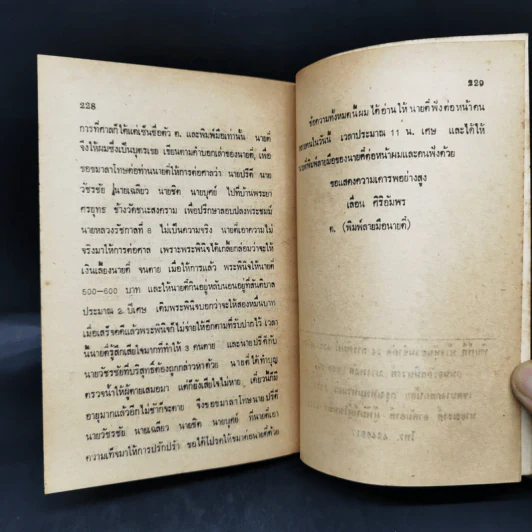 228
การที่ศาลก็ได้แต่เซ็นชื่อตัว ต. และพิมพ์มือเท่านั้น นายตี๋
จึงให้ผมซึ่งเป็นบุตรเขย เขียนตามคำบอกเล่าของนายตี๋ เพื่อ
ขอขมาลาโทษต่อท่านนายตี๋ให้การต่อศาลว่า นายปรีดี นาย
วัชรชัย นายเฉลียว นายชิต นายบุศย์ ไปที่บ้านพระยา
ศรยุทธ ข้างวัดชนะสงคราม เพื่อปรึกษาลอบปลงพระชนม์
นายหลวงรัชกาลที่ 8 ไม่เป็นความจริง นายตี๋เอาความไม่
จริงมาให้การต่อศาล เพราะพระพินิจได้เกลี้ยกล่อมว่าจะให้
เงินเลี้ยงนายตี๋ จนตาย เมื่อให้การแล้ว พระพินิจให้นายตี๋
500–600 บาท และให้นายตี๋กินอยู่หลับนอนอยู่ที่สันติบาล
ประมาณ 2 ปีเศษ เดิมพระพินิจบอกว่าจะให้สองหมื่นบาท
เมื่อเสร็จคดีแล้วพระพินิจก็ไม่จ่ายให้อีกตามที่รับปากไว้ เวลา
นี้นายตี๋รู้สึกเสียใจมากที่ทำให้ 3 คนตาย และนายปรีดีกับ
นายวัชรชัยที่บริสุทธิ์ต้องถูกกล่าวหาด้วย นายตี๋ได้ทำบุญ
ตรวจน้ำให้ผู้ตายเสมอมา แต่ก็ยังเสียใจไม่หาย เดี๋ยวนี้ก็มี
อายุมากแล้วอีกไม่ช้าก็จะตาย จึงขอขมาลาโทษนายปรีดี
นายวัชรชัย นายเฉลียว นายชิต นายบุศย์ ที่นายตี๋เอา
ความเท็จมาให้การปรักปรำ ขอได้โปรดให้ขมาต่อนายตี๋ด้วย
229
ข้อความทั้งหมดนี้ผมได้อ่านให้นายตี๋ฟังต่อหน้าคน
คนในวันนี้ เวลาประมาณ 11 น. เศษ และได้ให้
นายตี๋พิมพ์ลายมือของนายตี๋ต่อหน้าผมและคนฟังด้วย
ขอแสดงความเคารพอย่างสูง
เลื่อน ศิริอัมพร
ต. (พิมพ์ลายมือนายตี๋)